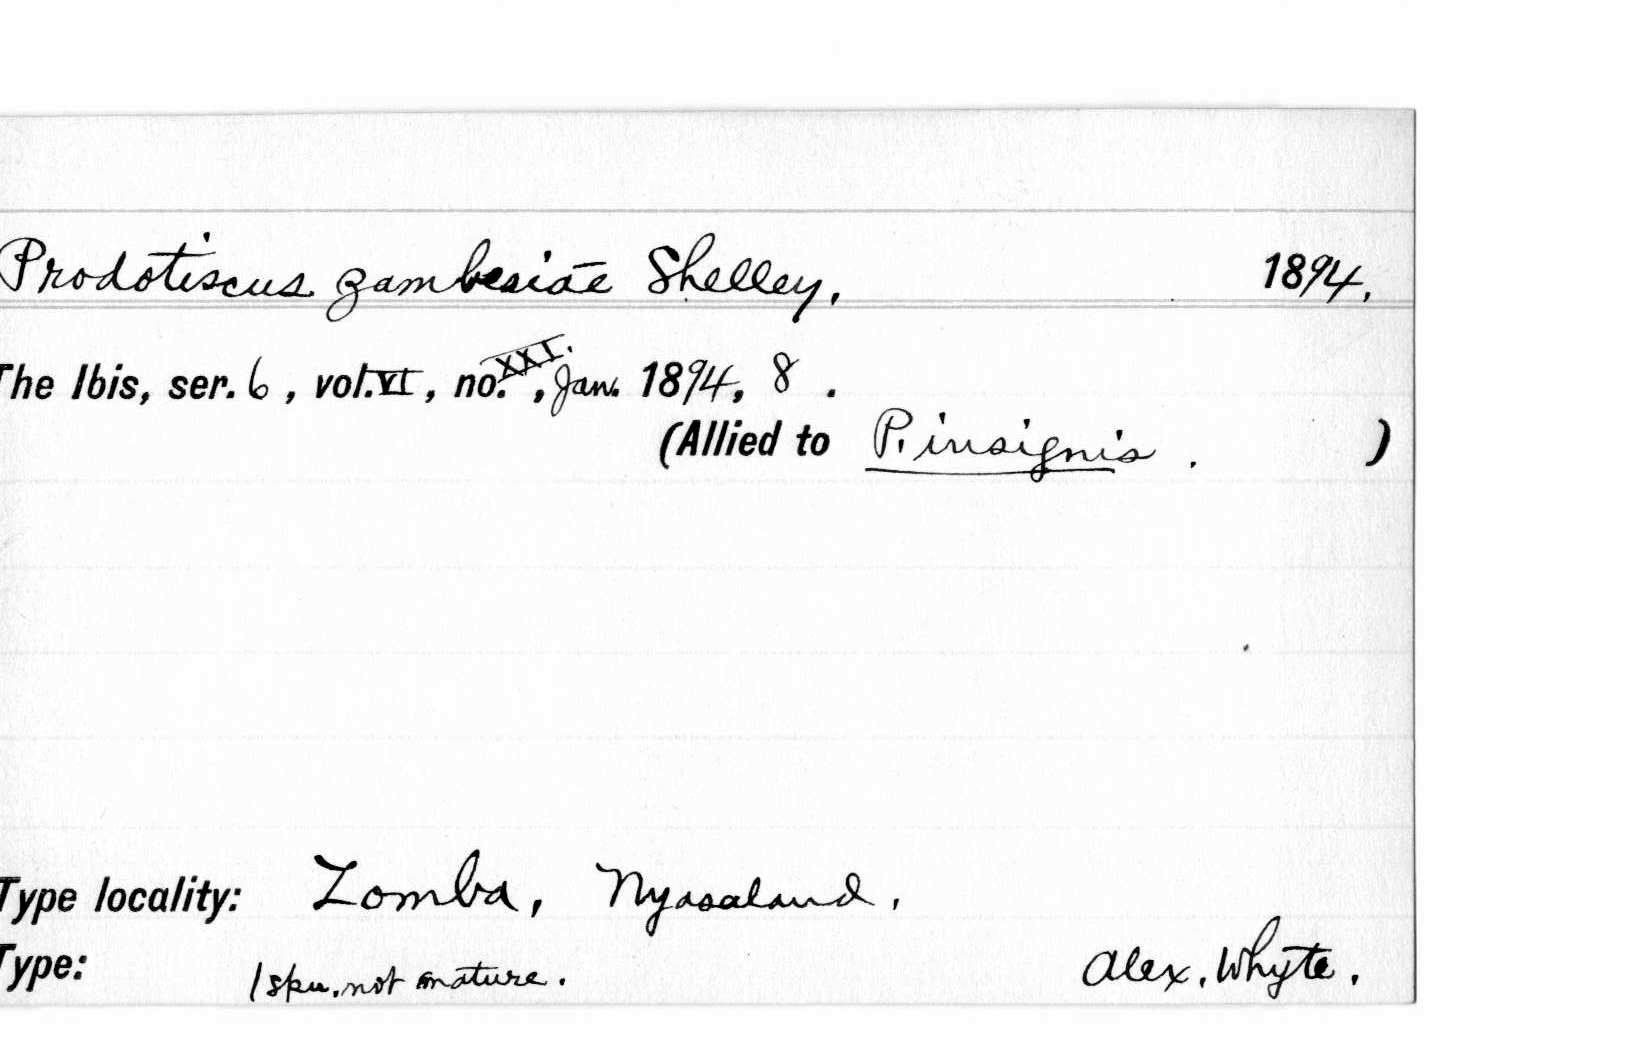 Prodotiscus zambesiae Shelley, 1894.
The Ibis, ser. 6, vol. VI, no. XXI., Jan. 1894, 8.
(Allied to P. insignis. )
Type locality: Zomba, Nyasaland.
Type: 1 spn. not mature. Alex. Whyte.